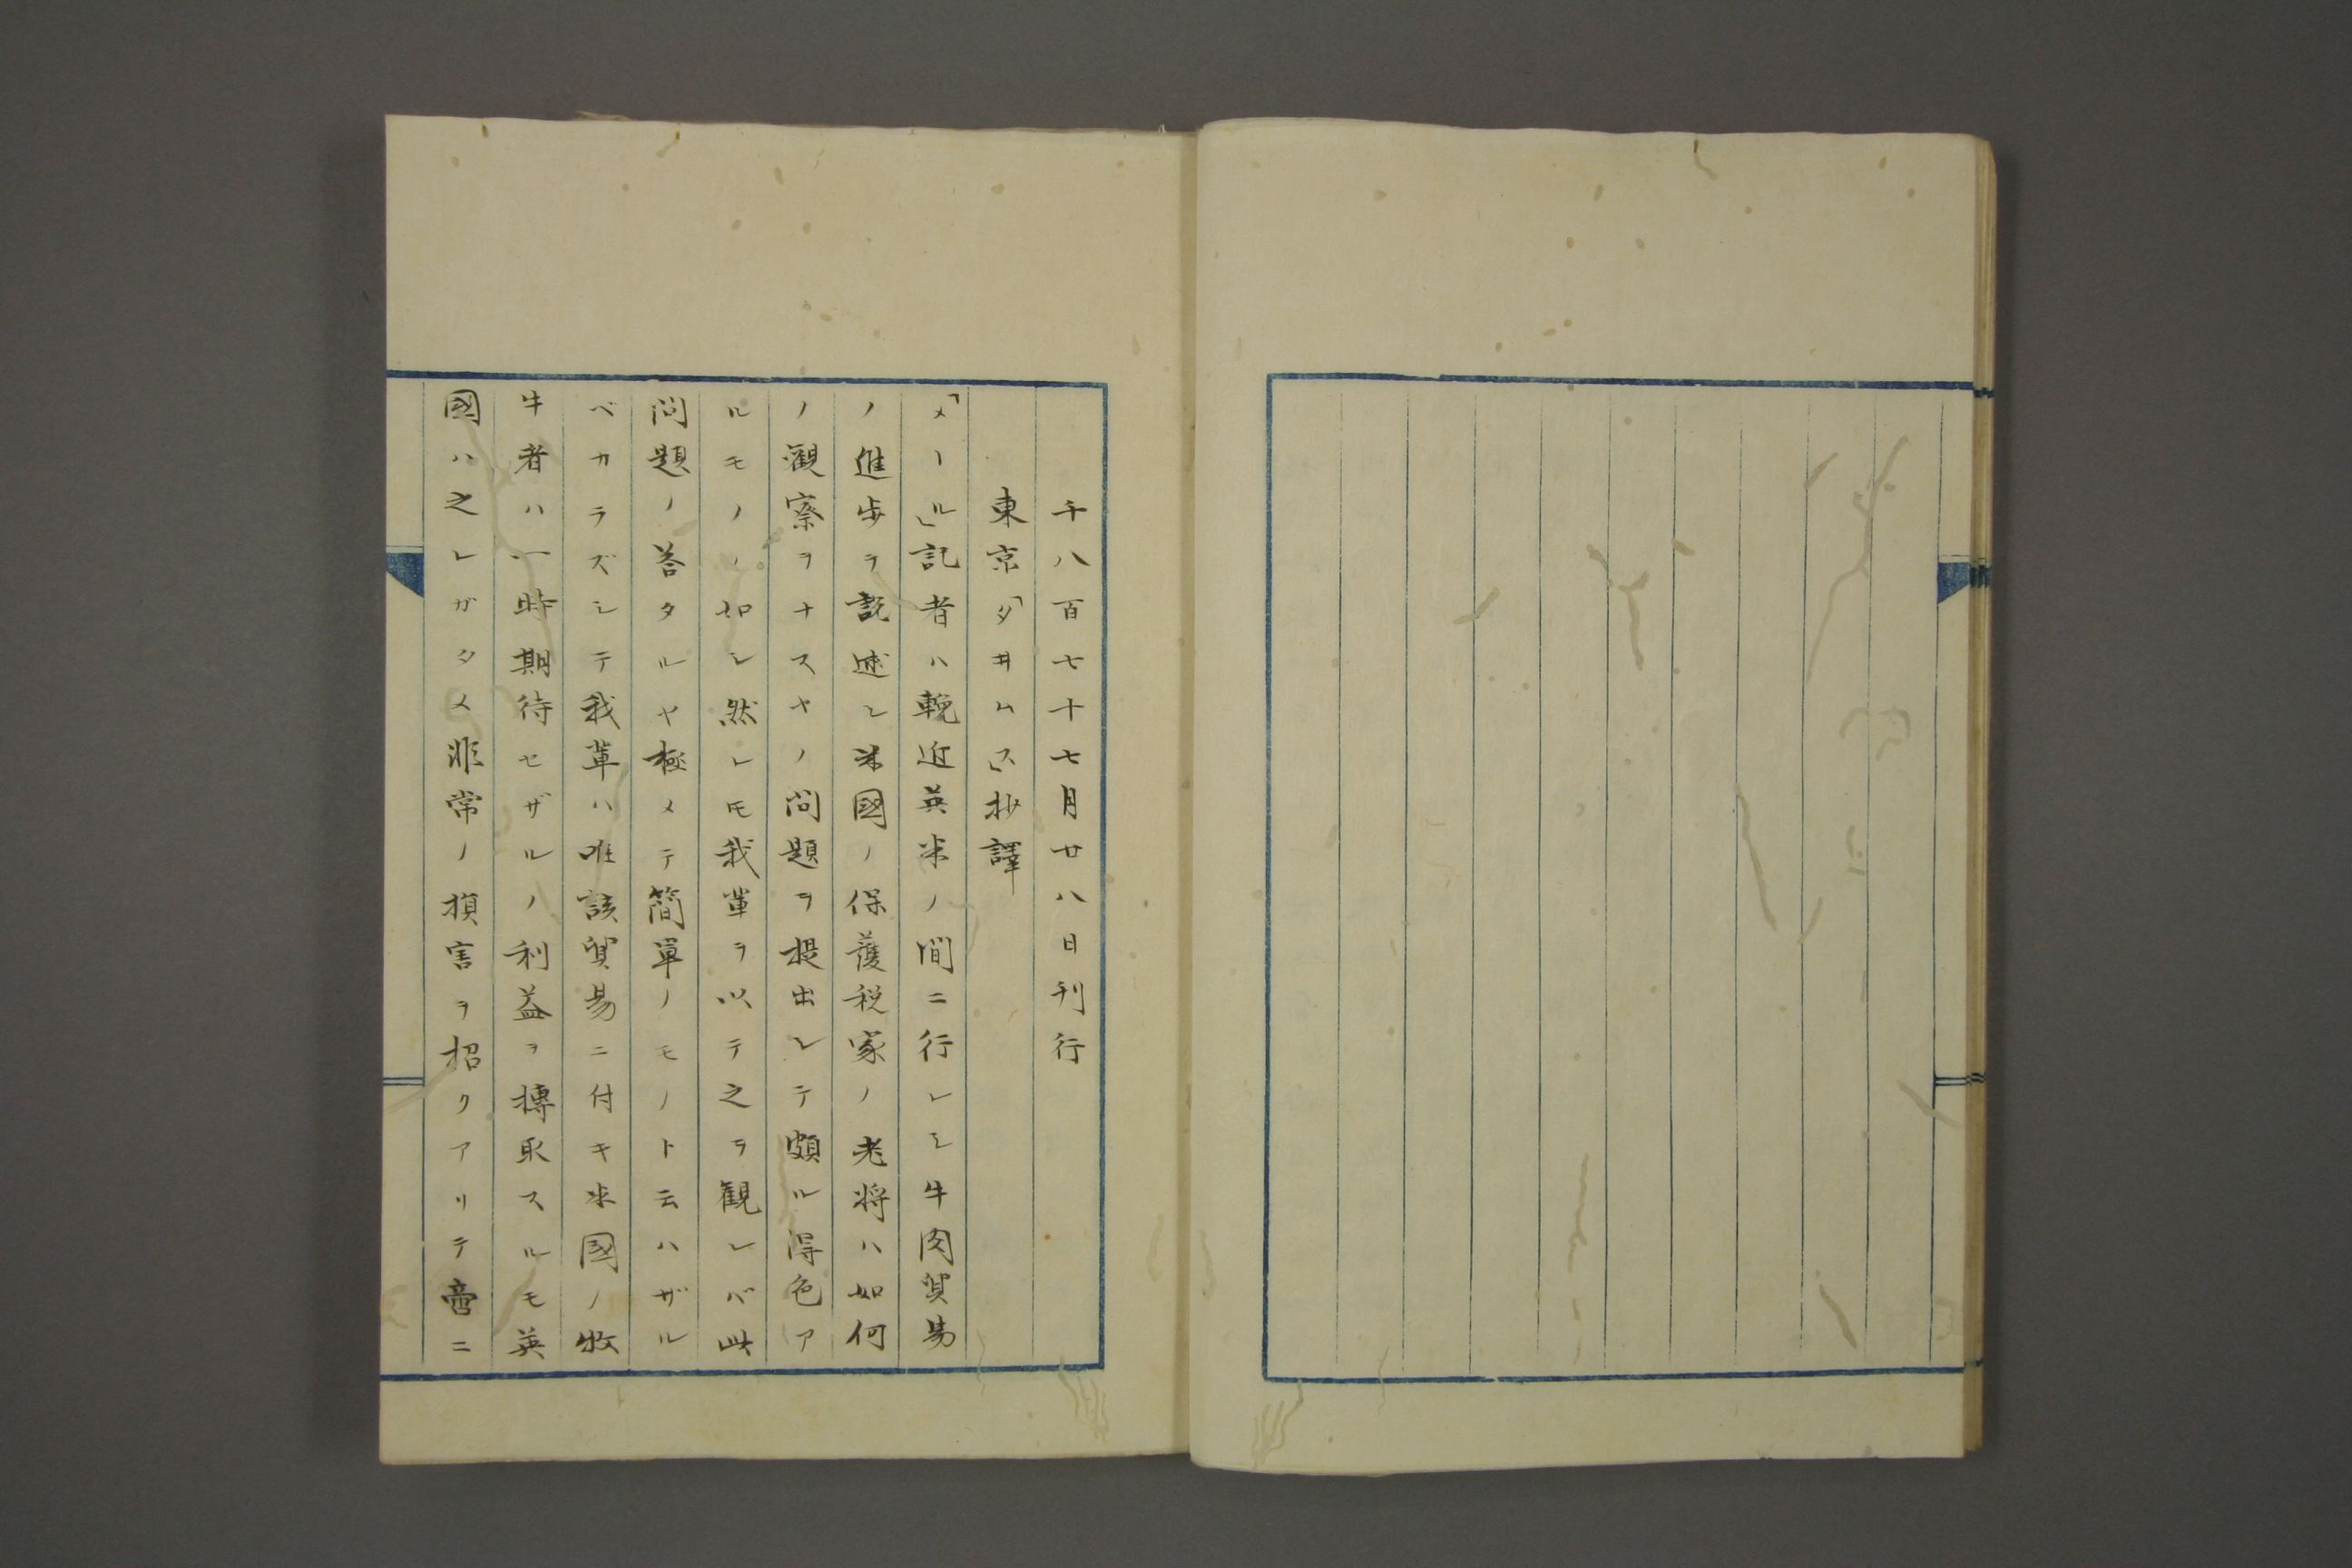 千八百七十七月廿八日刊行
東京「タヰムス」抄譯
「メール」記者ハ輓近英米ノ間ニ行レシ牛肉貿易
ノ進歩ヲ説述シ米國ノ保護税家ノ老将ハ如何
ノ觀察ヲナスヤノ問題ヲ提出シテ頗ル得色ア
ルモノヽ如シ然レモ我輩ヲ以テ之ヲ観レバ此
問題ノ答タルヤ極メテ簡單ノモノト云ハザル
ベカラズシテ我輩ハ唯該貿易ニ付キ米國ノ牧
牛者ハ一時期待セザルノ利益ヲ摶取スルモ英
國ハ之レガタメ非常ノ損害ヲ招クアリテ啻ニ